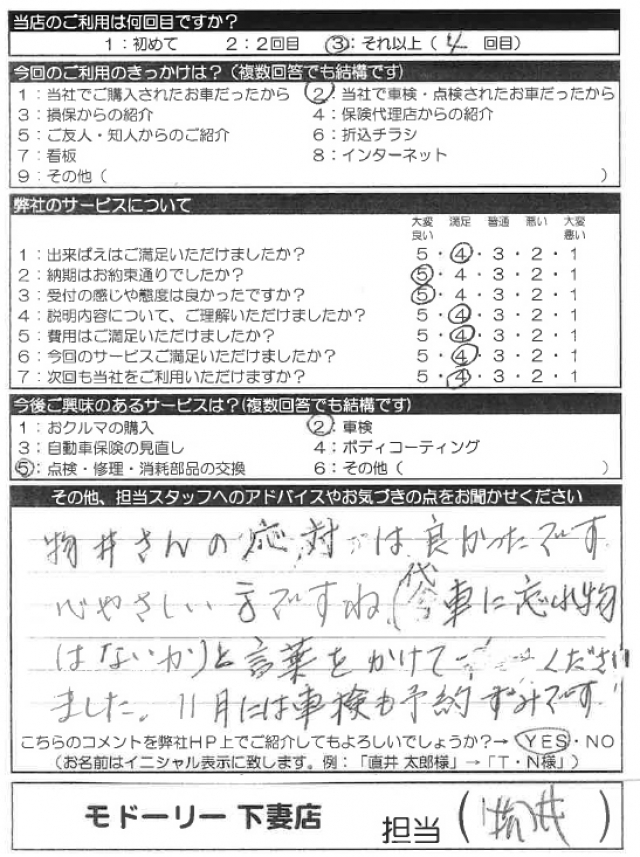 当店のご利用は何回目ですか？
1：初めて 2：2回目 3：それ以上（ 4 回目）
今回のご利用のきっかけは？（複数回答でも結構です）
1：当社でご購入されたお車だったから 2：当社で車検・点検されたお車だったから
3：損保からの紹介 4：保険代理店からの紹介
5：ご友人・知人からのご紹介 6：折込チラシ
7：看板 8：インターネット
9：その他（ ）
弊社のサービスについて
大変良い 満足 普通 悪い 大変悪い
1：出来ばえはご満足いただけましたか？ 5・4・3・2・1
2：納期はお約束通りでしたか？ 5・4・3・2・1
3：受付の感じや態度は良かったですか？ 5・4・3・2・1
4：説明内容について、ご理解いただけましたか？ 5・4・3・2・1
5：費用はご満足いただけましたか？ 5・4・3・2・1
6：今回のサービスご満足いただけましたか？ 5・4・3・2・1
7：次回も当社をご利用いただけますか？ 5・4・3・2・1
今後ご興味のあるサービスは？(複数回答でも結構です)
1：おクルマの購入 2：車検
3：自動車保険の見直し 4：ボディコーティング
5：点検・修理・消耗部品の交換 6：その他（ ）
その他、担当スタッフへのアドバイスやお気づきの点をお聞かせください
物井さんの応対は良かったです
心やさしい方ですね(代車に忘れ物
はないか)と言葉をかけて くださり
ました。11月には車検も予約ずみです
こちらのコメントを弊社HP上でご紹介してもよろしいでしょうか？→ YES・NO
（お名前はイニシャル表示に致します。例：「直井 太郎様」→「T・N様」）
モドーリー 下妻店 担当（ ）